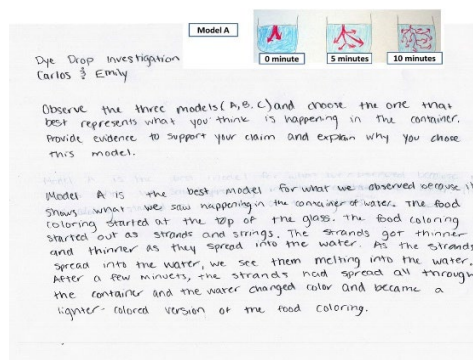 Model A
0 minute
5 minutes
10 minutes
Dye Drop Investigation
Carlos & Emily
Observe the three models (A, B, C) and choose the one that
best represents what you think is happening in the container.
Provide evidence to support your claim and explain why you chose
this model.
Model A is the best model for what we observed because it
shows what we saw happening in the container of water. The food
coloring started at the top of the glass. The food coloring
started out as strands and strings. The strands got thinner
and thinner as they spread into the water. As the strands
spread into the water, we see them melting into the water.
After a few minuets, the strands had spread all through
the container and the water changed color and became a
lighter-colored version of the food coloring.